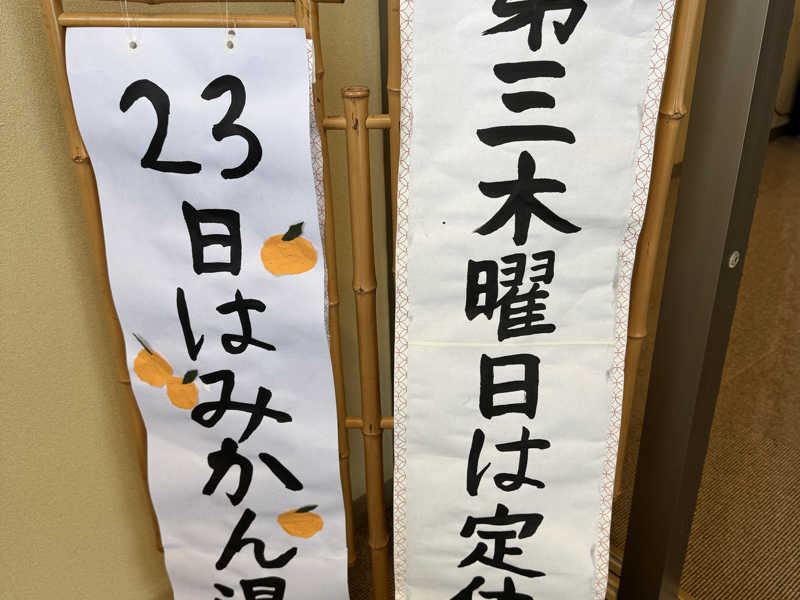 第三木曜日は定休
23日はみかん湯